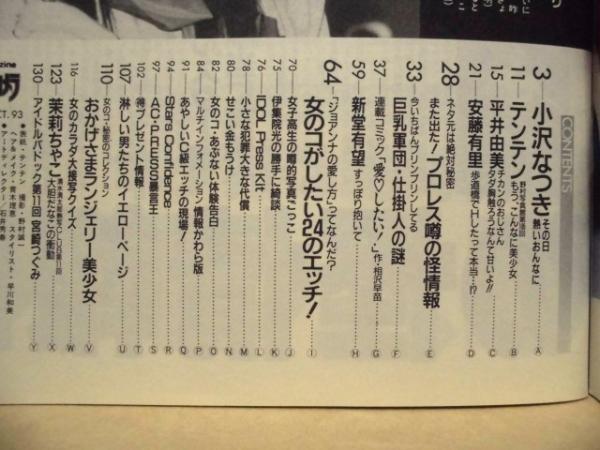 CONTENTS
3 小沢なつき その日熱いおんなに Ⓐ
11 テンテン 野村誠一 もう、こんなに美少女 Ⓑ
15 平井由美 チカンのおじさん タダ胸触ろうなんて甘いよ!! Ⓒ
21 安藤有里 歩道橋でHしたって本当…!? Ⓓ
ネタ元は絶対秘密
28 また出た!プロレス噂の怪情報 Ⓔ
今いちばんプリンプリンしてる
33 巨乳軍団・仕掛人の謎 Ⓕ
37 連載コミック「愛♡したい!」作・相沢早苗 Ⓖ
59 新堂有望 すっぽり抱いて Ⓗ
“ジョアンナの愛し方”ってなんだ?
64 女のコがしたい24のエッチ! Ⓘ
70 女子高生の噂的写真ごっこ Ⓙ
75 伊集院光の勝手に綺談 Ⓚ
76 IDOL Press Kit Ⓛ
78 小さな犯罪大きな代償 Ⓜ
80 せこい金もうけ Ⓝ
82 女のコ・あぶない体験告白 Ⓞ
84 マルチインフォメーション 情報かわら版 Ⓟ
91 あやしいC級エッチの現場! Ⓠ
94 Stars Confidence Ⓡ
97 AC・P.E.U.O.Sの暴言王 Ⓢ
102 ㊕プレゼント情報 Ⓣ
107 淋しい男たちのイエローページ Ⓤ
女のコ・秘密のコレクション
110 おかげさまランジェリー美少女 Ⓥ
116 女のカラダ大接写クイズ Ⓦ
123 茉莉ちゃこ 大胆だなこの衝動 Ⓧ
130 アイドルパドック第11回 宮崎つぐみ Ⓨ
CT. 93
●表紙・テンテン 撮影・野村誠一
スタイリスト・早川和美
●アートディレクター/石井秀春